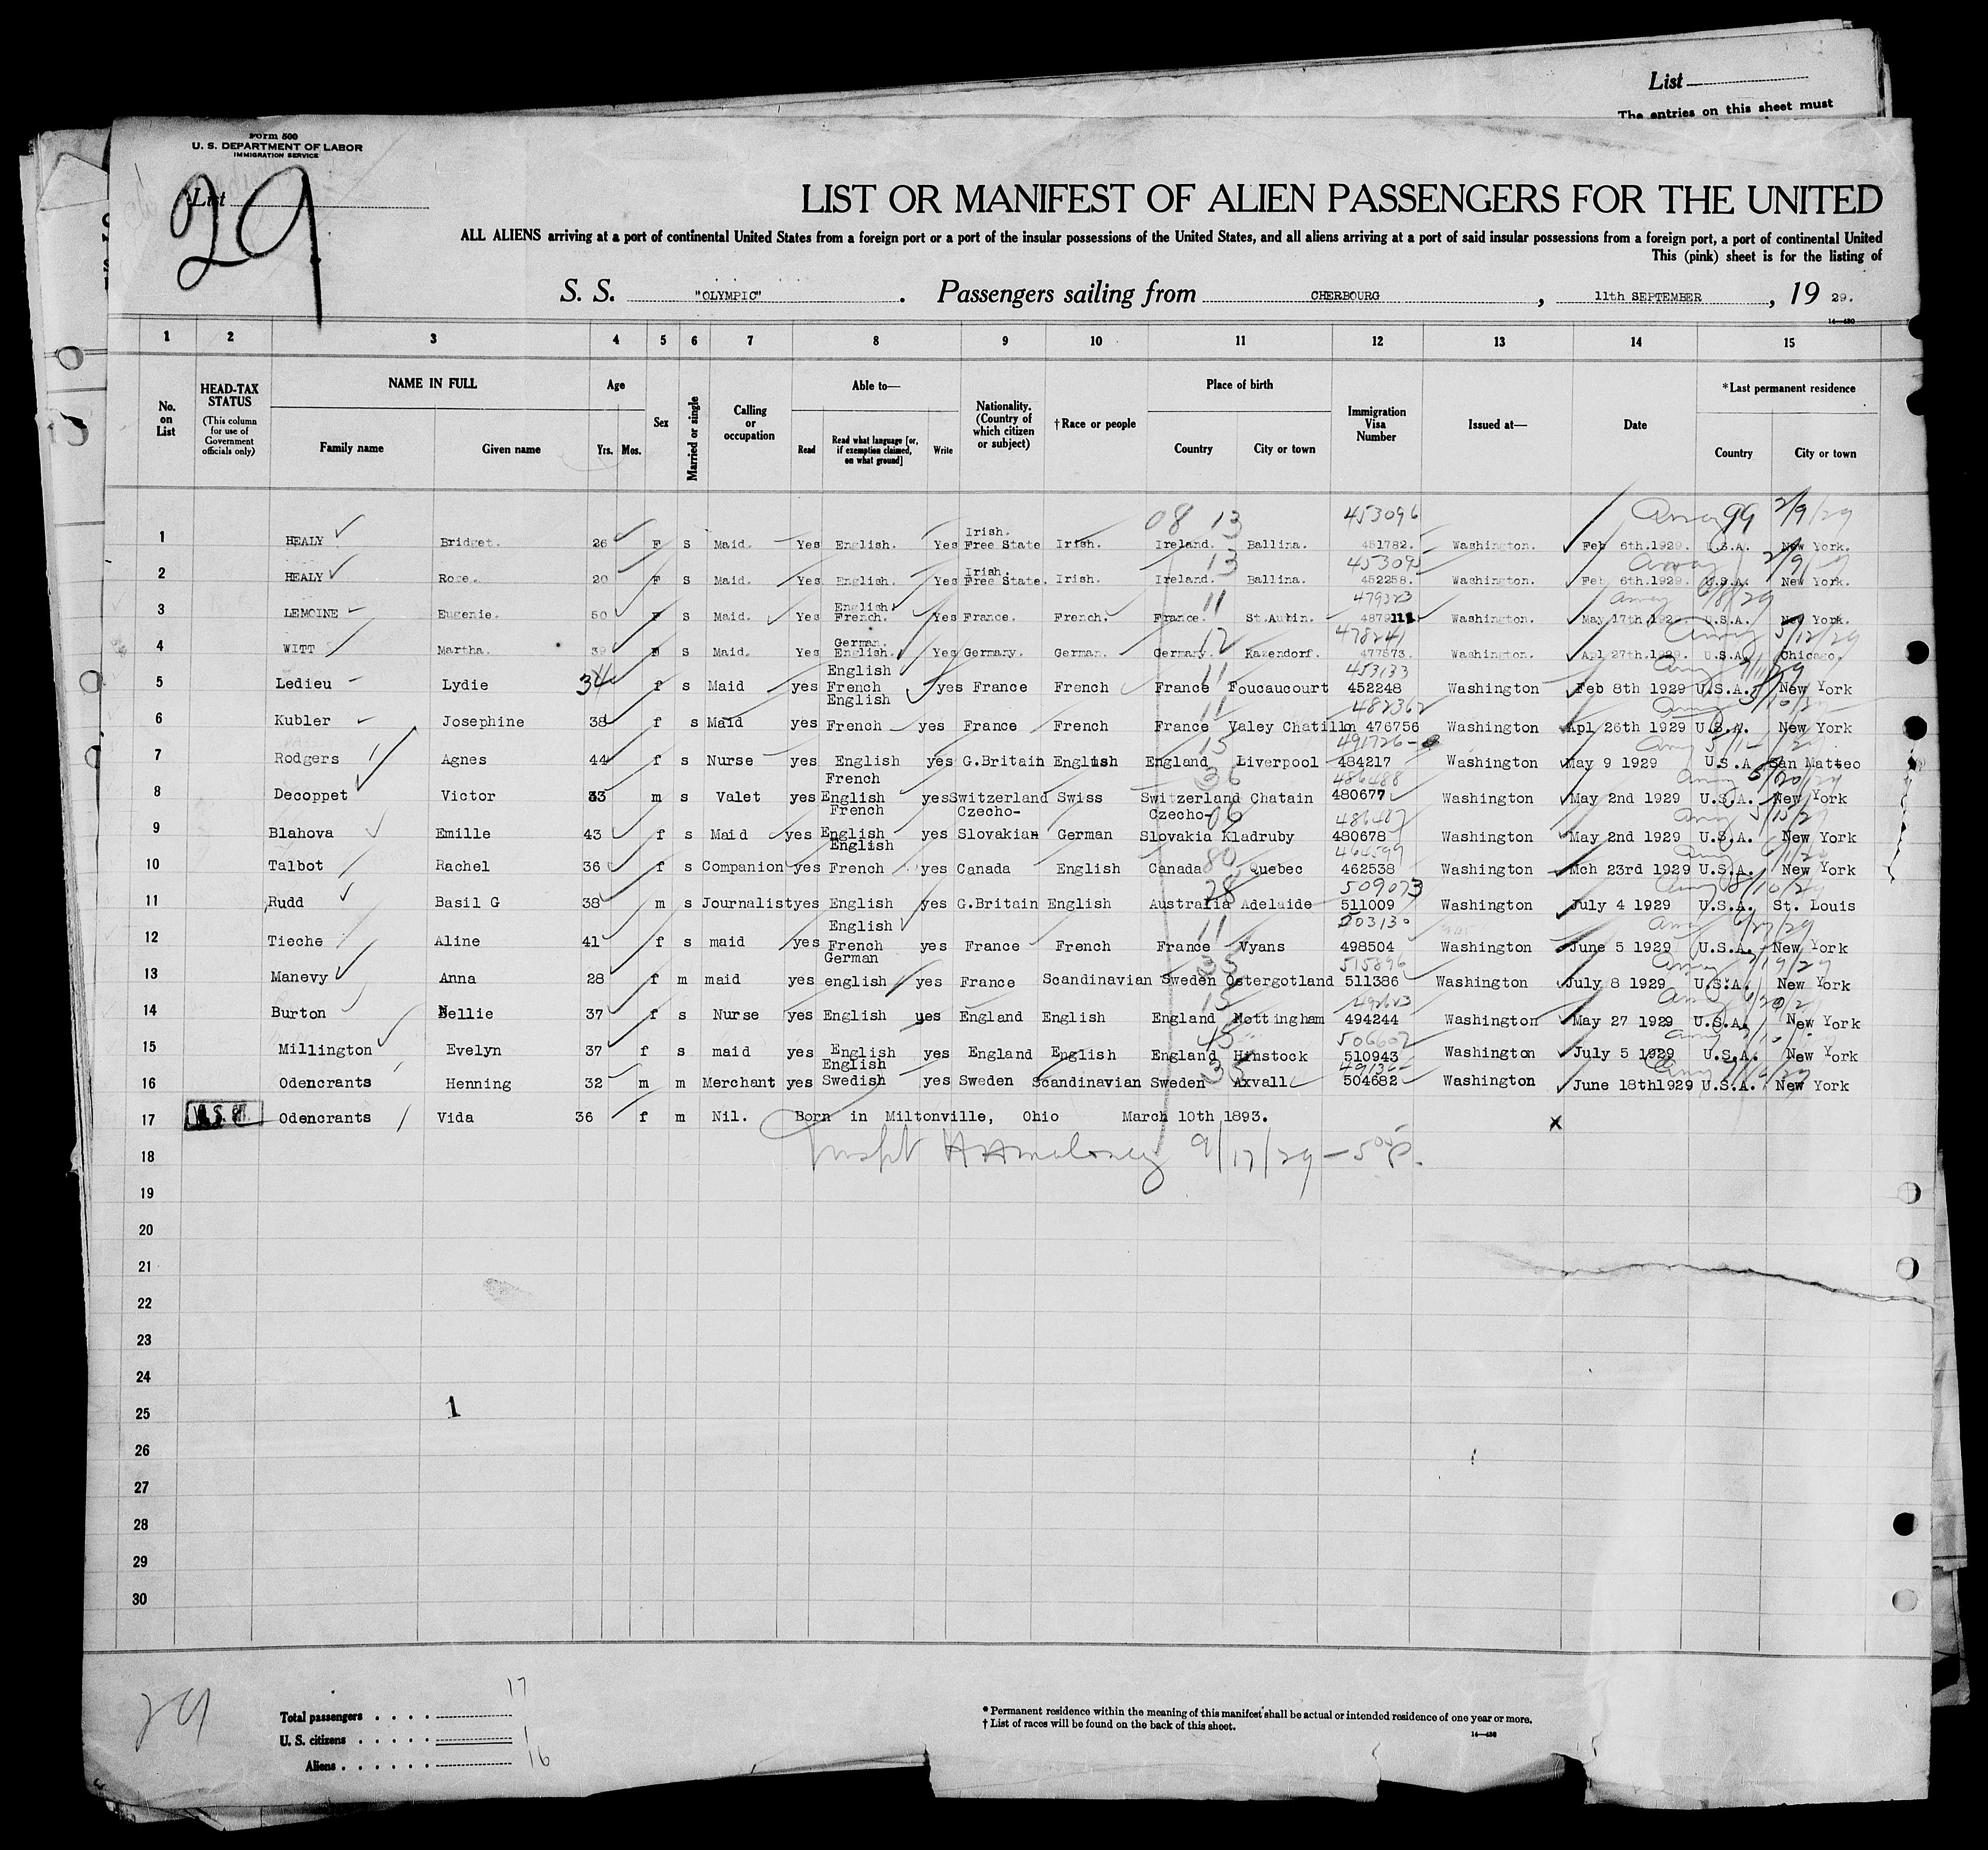 List
The entries on this sheet must
Form 500
U. S. DEPARTMENT OF LABOR
IMMIGRATION SERVICE
List
29
LIST OR MANIFEST OF ALIEN PASSENGERS FOR THE UNITED
ALL ALIENS arriving at a port of continental United States from a foreign port or a port of the insular possessions of the United States, and all aliens arriving at a port of said insular possessions from a foreign port, a port of continental United
This (pink) sheet is for the listing of
S. S. "OLYMPIC". Passengers sailing from CHERBOURG, 11th SEPTEMBER, 19 29.
1 2 3 4 5 6 7 8 9 10 11 12 13 14 15
No. on List HEAD-TAX STATUS (This column for use of Government officials only) NAME IN FULL Family name Given name Age Yrs. Mos. Sex Married or single Calling or occupation Able to— Read Read what language [or, if exemption claimed, on what ground] Write Nationality. (Country of which citizen or subject) †Race or people Place of birth Country City or town Immigration Visa Number Issued at— Date *Last permanent residence Country City or town
08 13 453096 99 2/9/29
1 HEALY Bridget. 26 F S Maid. Yes English. Yes Irish. Free State Irish. Ireland. Ballina. 451782. Washington. Feb 6th.1929. U.S.A. New York.
13
2 HEALY Rose. 20 F S Maid. Yes English. Yes Irish. Free State. Irish. Ireland. Ballina. 452258. Washington. Feb 6th.1929. U.S.A. New York.
11 479323
3 LEMOINE Eugenie. 50 F S Maid. Yes English. French. Yes France. French. France. St.Aubin. Washington. May 17th.1929. U.S.A. New York.
12 478241
4 WITT Martha. 39 F S Maid. Yes German. English. Yes Germany. German. Germany. Kazendorf. 477573. Washington. Apl 27th.1929. U.S.A. Chicago.
11 453133
5 Ledieu Lydie 34 f s Maid yes English French yes France French France Foucaucourt 452248 Washington Feb 8th 1929 U.S.A. New York
11 482362
6 Kubler Josephine 38 f s Maid yes English French yes France French France Valey Chatillon 476756 Washington Apl 26th 1929 U.S.A. New York
15 491726
7 Rodgers Agnes 44 f s Nurse yes English yes G.Britain English England Liverpool 484217 Washington May 9 1929 U.S.A. San Matteo
36 486488
8 Decoppet Victor 33 m s Valet yes French English yes Switzerland Swiss Switzerland Chatain 480677 Washington May 2nd 1929 U.S.A. New York
06 486407
9 Blahova Emille 43 f s Maid yes French English yes Czecho-Slovakian German Czecho-Slovakia Kladruby 480678 Washington May 2nd 1929 U.S.A. New York
80 464599
10 Talbot Rachel 36 f s Companion yes English French yes Canada English Canada Quebec 462538 Washington Mch 23rd 1929 U.S.A. New York
28 509073
11 Rudd Basil G 38 m s Journalist yes English yes G.Britain English Australia Adelaide 511009 Washington July 4 1929 U.S.A. St. Louis
11
12 Tieche Aline 41 f s maid yes English French German yes France French France Vyans 498504 Washington June 5 1929 U.S.A. New York
35 515896
13 Manevy Anna 28 f m maid yes english yes France Scandinavian Sweden Ostergotland 511386 Washington July 8 1929 U.S.A. New York
15
14 Burton Nellie 37 f s Nurse yes English yes England English England Nottingham 494244 Washington May 27 1929 U.S.A. New York
506602
15 Millington Evelyn 37 f s maid yes English yes England English England Hinstock 510943 Washington July 5 1929 U.S.A. New York
35
16 Odencrants Henning 32 m m Merchant yes English Swedish yes Sweden Scandinavian Sweden Axvall 504682 Washington June 18th1929 U.S.A. New York
17 Odencrants Vida 36 f m Nil. Born in Miltonville, Ohio March 10th 1893. x
18 9/17/29
19
20
21
22
23
24
25 1
26
27
28
29
30
29
Total passengers 17
U. S. citizens 1
Aliens 16
* Permanent residence within the meaning of this manifest shall be actual or intended residence of one year or more.
† List of races will be found on the back of this sheet.